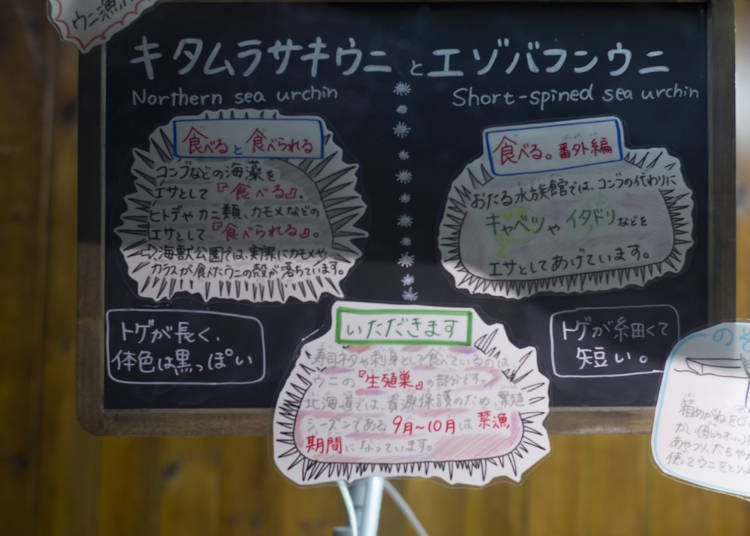 ウニ漁
キタムラサキウニとエゾバフンウニ
Northern sea urchin
Short-spined sea urchin
食べると食べられる
コンブなどの海藻を
エサとして『食べる』。
ヒトデやカニ類、カモメなどの
エサとして『食べられる』。
海獣公園では、実際にカモメや
カラスが食べたウニの殻が落ちています。
食べる。番外編
おたる水族館では、コンブの代わりに
キャベツやイタドリなどを
エサとしてあげています。
トゲが長く、
体色は黒っぽい
トゲが細くて
短い。
いただきます
寿司ネタや刺身として食べているのは、
ウニの『生殖巣』の部分です。
北海道では、資源保護のため、繁殖
シーズンである9月〜10月は禁漁
期間になっています。
のぞ
箱めがねを
使ってウニをとり